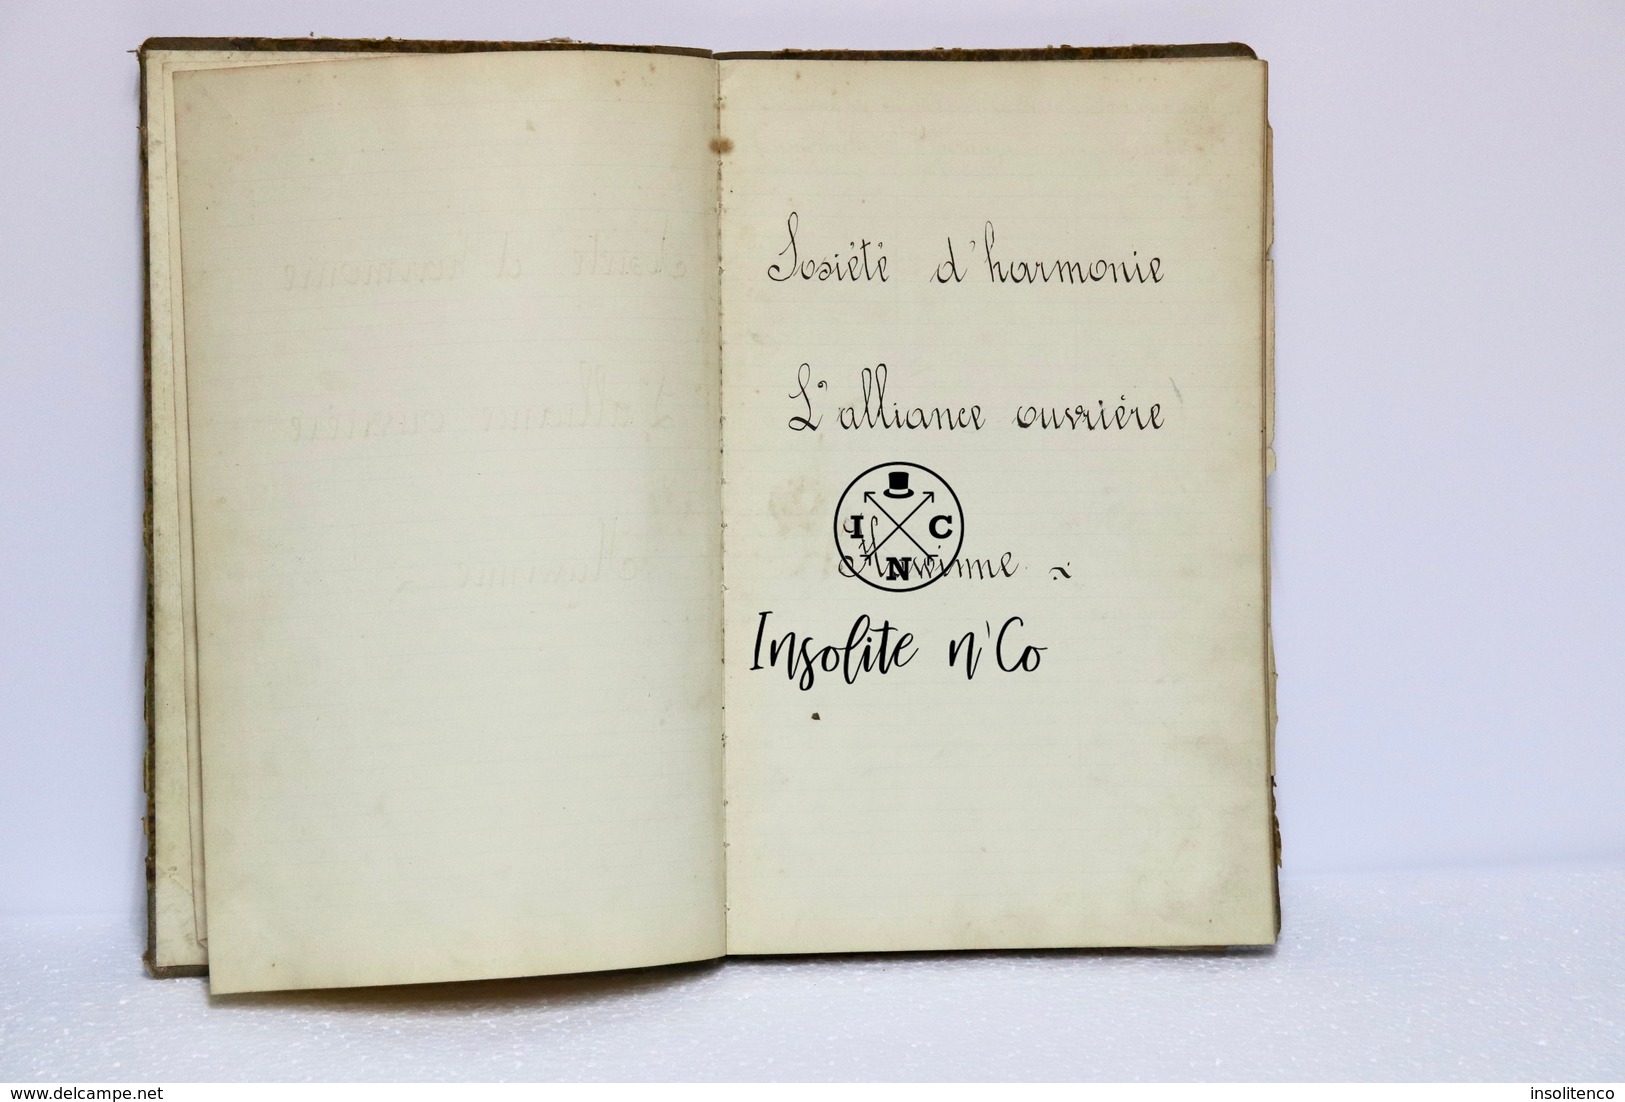 Société d'harmonie
L'alliance ouvrière
I C
N
Insolite n'Co
delcampe.net
insolitenco